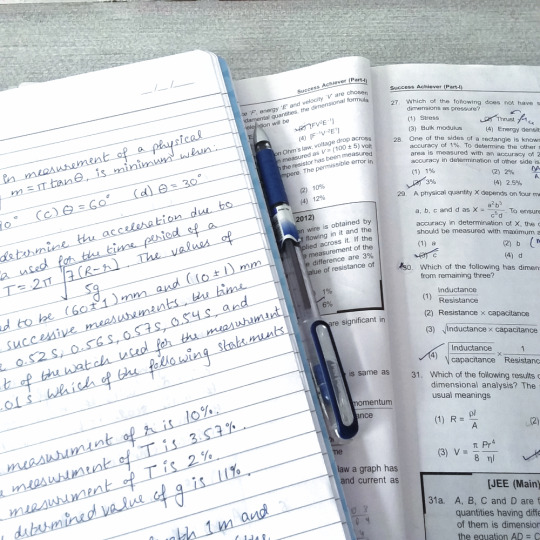 In measurement of a physical
m = π tanθ, is minimum when:
(c) θ = 60° (d) θ = 30°
determine the acceleration due to
used for the time period of a
T = 2π √(7(R-r)/5g). The values of
to be (60±1) mm and (10±1) mm
successive measurements, the time
0.52s, 0.56s, 0.57s, 0.54s, and
of the watch used for the measurement
.01s. Which of the following statements
measurement of r is 10%.
measurement of T is 3.57%.
measurement of T is 2%.
determined value of g is 11%.
1m and
Success Achiever (Part-I)
energy 'E' and velocity 'V' are chosen
quantities, the dimensional formula
will be
Ohm's law, voltage drop across
measured as V = (100 ± 5) volt
the resistor has been measured
The permissible error in
(2) 10%
(4) 12%
2012)
wire is obtained by
flowing in it and the
applied across it. If the
measurement of the
difference are 3%
value of resistance of
1%
6%
are significant in
is same as
momentum
law a graph has
and current as
Success Achiever (Part-I)
27. Which of the following does not have
dimensions as pressure?
(1) Stress
(2) Thrust
(3) Bulk modulus
(4) Energy densit
28. One of the sides of a rectangle is known
accuracy of 1%. To determine the other
area is measured with an accuracy of
accuracy in determination of other side is
(1) 1%
(2) 2%
(3) 3%
(4) 2.5%
29. A physical quantity X depends on four
a, b, c and d as X = a²b³/c⁴d. To ensure
accuracy in determination of X, the
should be measured with maximum a
(1) a
(2) b
(3) c
(4) d
30. Which of the following has dimen
from remaining three?
(1) Inductance/Resistance
(2) Resistance × capacitance
(3) √Inductance × capacitance
(4) √Inductance/capacitance × 1/Resistanc
31. Which of the following results c
dimensional analysis? The
usual meanings
(1) R = ρl/A
(2)
(3) V = π/8 Pr⁴/ηl
[JEE (Main)
31a. A, B, C and D are f
quantities having diffe
of them is dimension
the equation AD = C